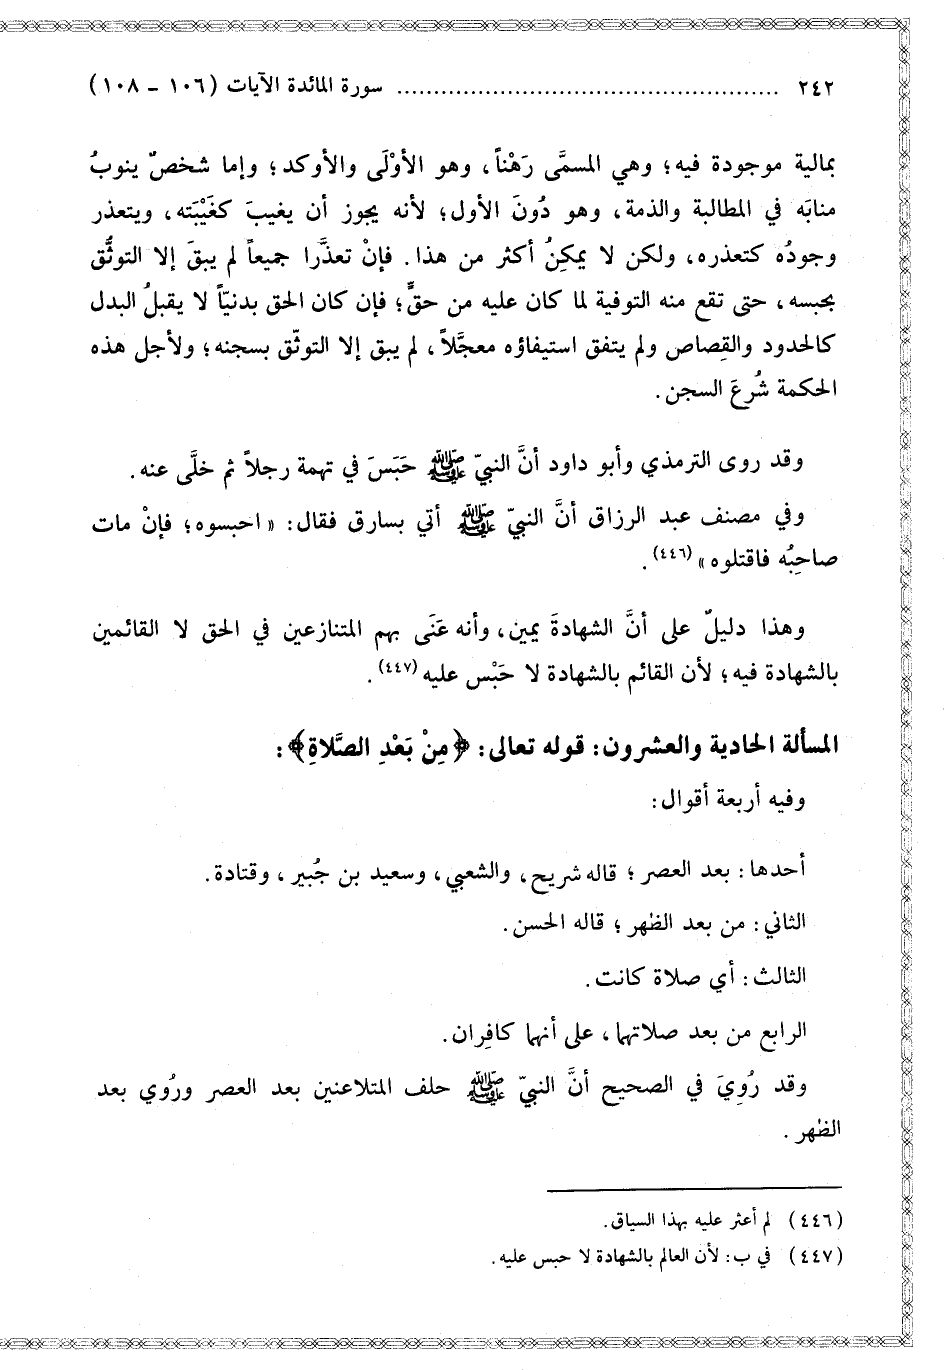 ٢٤٢ ................................................ سورة المائدة الآيات (١٠٦ - ١٠٨)
بمالية موجودة فيه؛ وهي المسمَّى رَهْناً، وهو الأوْلَى والأوكد؛ وإما شخصٌ ينوبُ
منابَه في المطالبة والذمة، وهو دُونَ الأول؛ لأنه يجوز أن يغيبَ كغَيْبَته، ويتعذر
وجودُه كتعذره، ولكن لا يمكِنُ أكثر من هذا. فإنْ تعذَّرا جميعاً لم يبقَ إلا التوثُّق
بحبسه، حتى تقع منه التوفية لما كان عليه من حقٍّ؛ فإن كان الحق بدنيّاً لا يقبلُ البدل
كالحدود والقِصاص ولم يتفق استيفاؤه معجَّلاً، لم يبق إلا التوثّق بسجنه؛ ولأجل هذه
الحكمة شُرعَ السجن.
وقد روى الترمذي وأبو داود أنَّ النبيّ ﷺ حَبَسَ في تهمة رجلاً ثم خلَّى عنه.
وفي مصنف عبد الرزاق أنَّ النبيّ ﷺ أتي بسارق فقال: «احبسوه؛ فإنْ مات
صاحِبُه فاقتلوه» (٤٤٦).
وهذا دليلٌ على أنَّ الشهادةَ يمين، وأنه عَنَى بهم المتنازعين في الحق لا القائمين
بالشهادة فيه؛ لأن القائم بالشهادة لا حَبْس عليه (٤٤٧).
المسألة الحادية والعشرون: قوله تعالى: ﴿مِنْ بَعْدِ الصَّلاةِ﴾:
وفيه أربعة أقوال:
أحدها: بعد العصر؛ قاله شريح، والشعبي، وسعيد بن جُبير، وقتادة.
الثاني: من بعد الظهر؛ قاله الحسن.
الثالث: أي صلاة كانت.
الرابع من بعد صلاتهما، على أنهما كافِران.
وقد رُوِيَ في الصحيح أنَّ النبيّ ﷺ حلف المتلاعنين بعد العصر ورُوي بعد
الظهر.
(٤٤٦) لم أعثر عليه بهذا السياق.
(٤٤٧) في ب: لأن العالم بالشهادة لا حبس عليه.